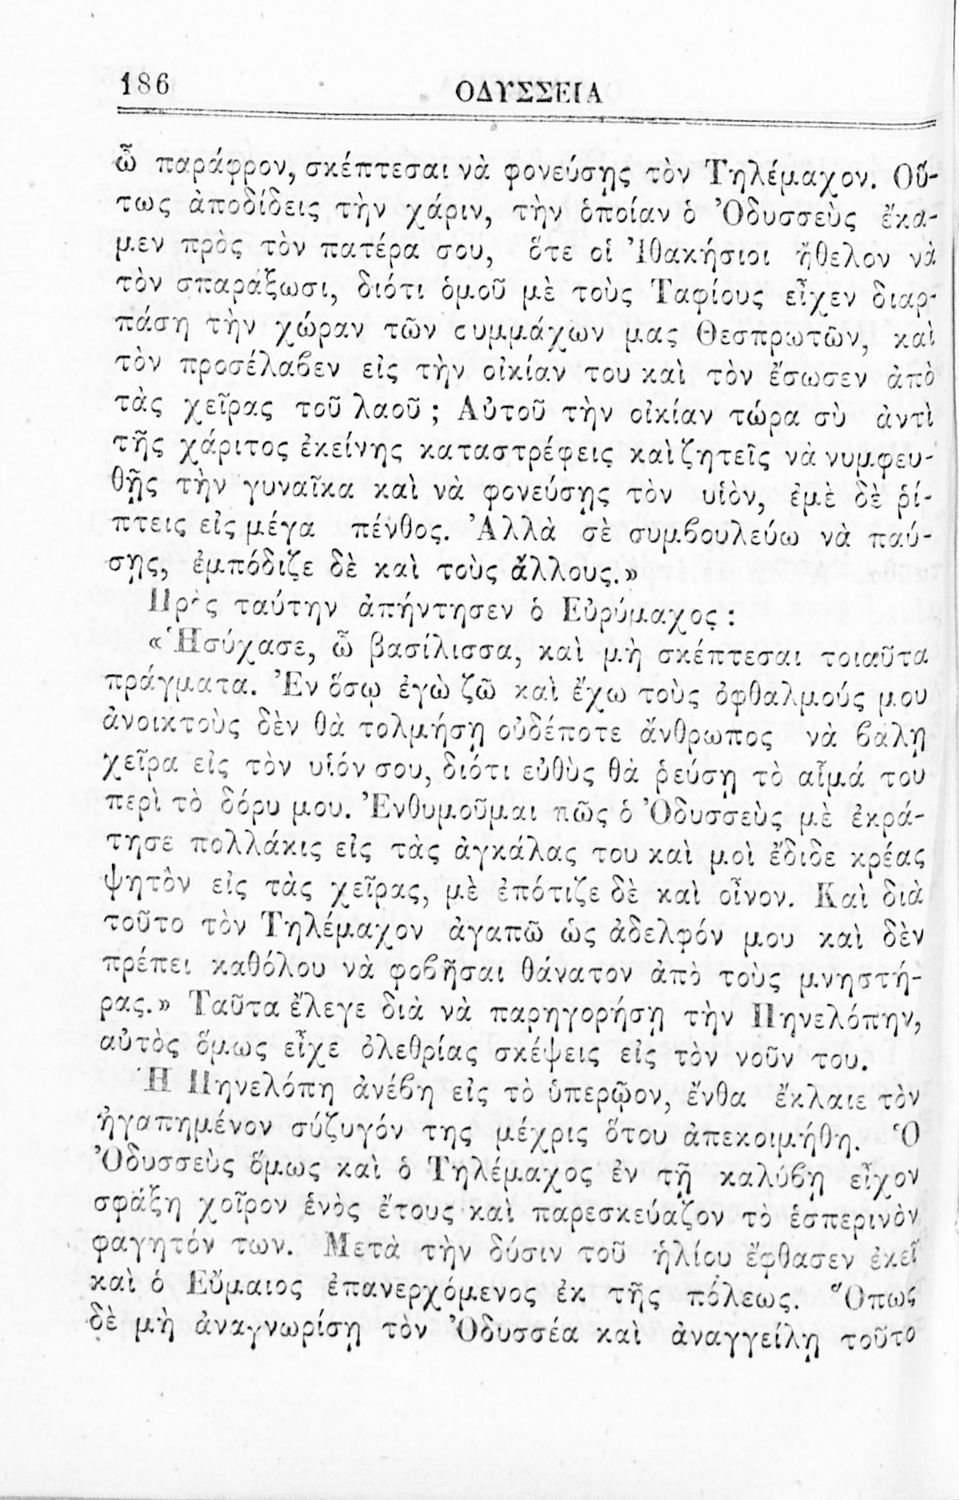 186
ΟΔΥΣΣΕΙΑ
ὦ παράφρον, σκέπτεσαι νὰ φονεύσῃς τὸν Τηλέμαχον. Οὕ-
τως ἀποδίδεις τὴν χάριν, τὴν ὁποίαν ὁ Ὀδυσσεὺς ἔκα-
μεν πρὸς τὸν πατέρα σου, ὅτε οἱ Ἰθακήσιοι ἤθελον νὰ
τὸν σπαράξωσι, διότι ὁμοῦ μὲ τοὺς Ταφίους εἶχεν διαρ-
πάσῃ τὴν χώραν τῶν συμμάχων μας Θεσπρωτῶν, καὶ
τὸν προσέλαβεν εἰς τὴν οἰκίαν του καὶ τὸν ἔσωσεν ἀπὸ
τὰς χεῖρας τοῦ λαοῦ ; Αὐτοῦ τὴν οἰκίαν τώρα σὺ ἀντὶ
τῆς χάριτος ἐκείνης καταστρέφεις καὶ ζητεῖς νὰ νυμφευ-
θῇς τὴν γυναῖκα καὶ νὰ φονεύσῃς τὸν υἱὸν, ἐμὲ δὲ ῥί-
πτεις εἰς μέγα πένθος. Ἀλλὰ σὲ συμβουλεύω νὰ παύ-
σῃς, ἐμπόδιζε δὲ καὶ τοὺς ἄλλους.»
Πρὸς ταύτην ἀπήντησεν ὁ Εὐρύμαχος :
«Ἡσύχασε, ὦ βασίλισσα, καὶ μὴ σκέπτεσαι τοιαῦτα
πράγματα. Ἐν ὅσῳ ἐγὼ ζῶ καὶ ἔχω τοὺς ὀφθαλμούς μου
ἀνοικτοὺς δὲν θὰ τολμήσῃ οὐδέποτε ἄνθρωπος νὰ βάλῃ
χεῖρα εἰς τὸν υἱόν σου, διότι εὐθὺς θὰ ῥεύσῃ τὸ αἷμά του
περὶ τὸ δόρυ μου. Ἐνθυμοῦμαι πῶς ὁ Ὀδυσσεὺς μὲ ἐκρά-
τησε πολλάκις εἰς τὰς ἀγκάλας του καὶ μοὶ ἔδιδε κρέας
ψητὸν εἰς τὰς χεῖρας, μὲ ἐπότιζε δὲ καὶ οἶνον. Καὶ διὰ
τοῦτο τὸν Τηλέμαχον ἀγαπῶ ὡς ἀδελφόν μου καὶ δὲν
πρέπει καθόλου νὰ φοβῆσαι θάνατον ἀπὸ τοὺς μνηστή-
ρας.» Ταῦτα ἔλεγε διὰ νὰ παρηγορήσῃ τὴν Πηνελόπην,
αὐτὸς ὅμως εἶχε ὀλεθρίας σκέψεις εἰς τὸν νοῦν του.
Ἡ Πηνελόπη ἀνέβη εἰς τὸ ὑπερῷον, ἔνθα ἔκλαιε τὸν
ἠγαπημένον σύζυγόν της μέχρις ὅτου ἀπεκοιμήθη. Ὁ
Ὀδυσσεὺς ὅμως καὶ ὁ Τηλέμαχος ἐν τῇ καλύβῃ εἶχον
σφάξῃ χοῖρον ἑνὸς ἔτους καὶ παρεσκεύαζον τὸ ἑσπερινὸν
φαγητόν των. Μετὰ τὴν δύσιν τοῦ ἡλίου ἔφθασεν ἐκεῖ
καὶ ὁ Εὔμαιος ἐπανερχόμενος ἐκ τῆς πόλεως. Ὅπως
δὲ μὴ ἀναγνωρίσῃ τὸν Ὀδυσσέα καὶ ἀναγγείλῃ τοῦτο